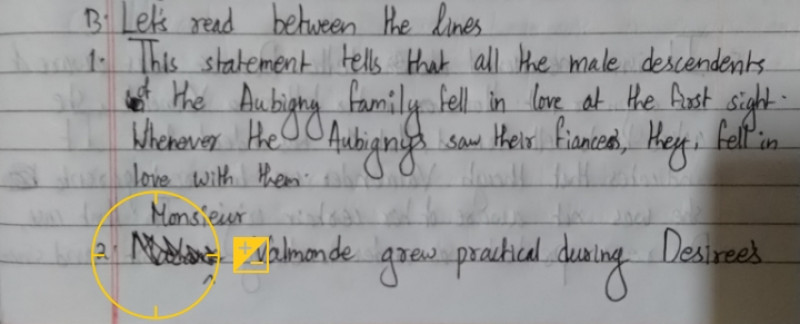 B. Let's read between the lines
1. This statement tells that all the male descendents
of the Aubigny family fell in love at the first sight.
Whenever the Aubignys saw their fiancees, they, fell in
love with them.
Monsieur
2. Valmonde grew practical during Desiree's